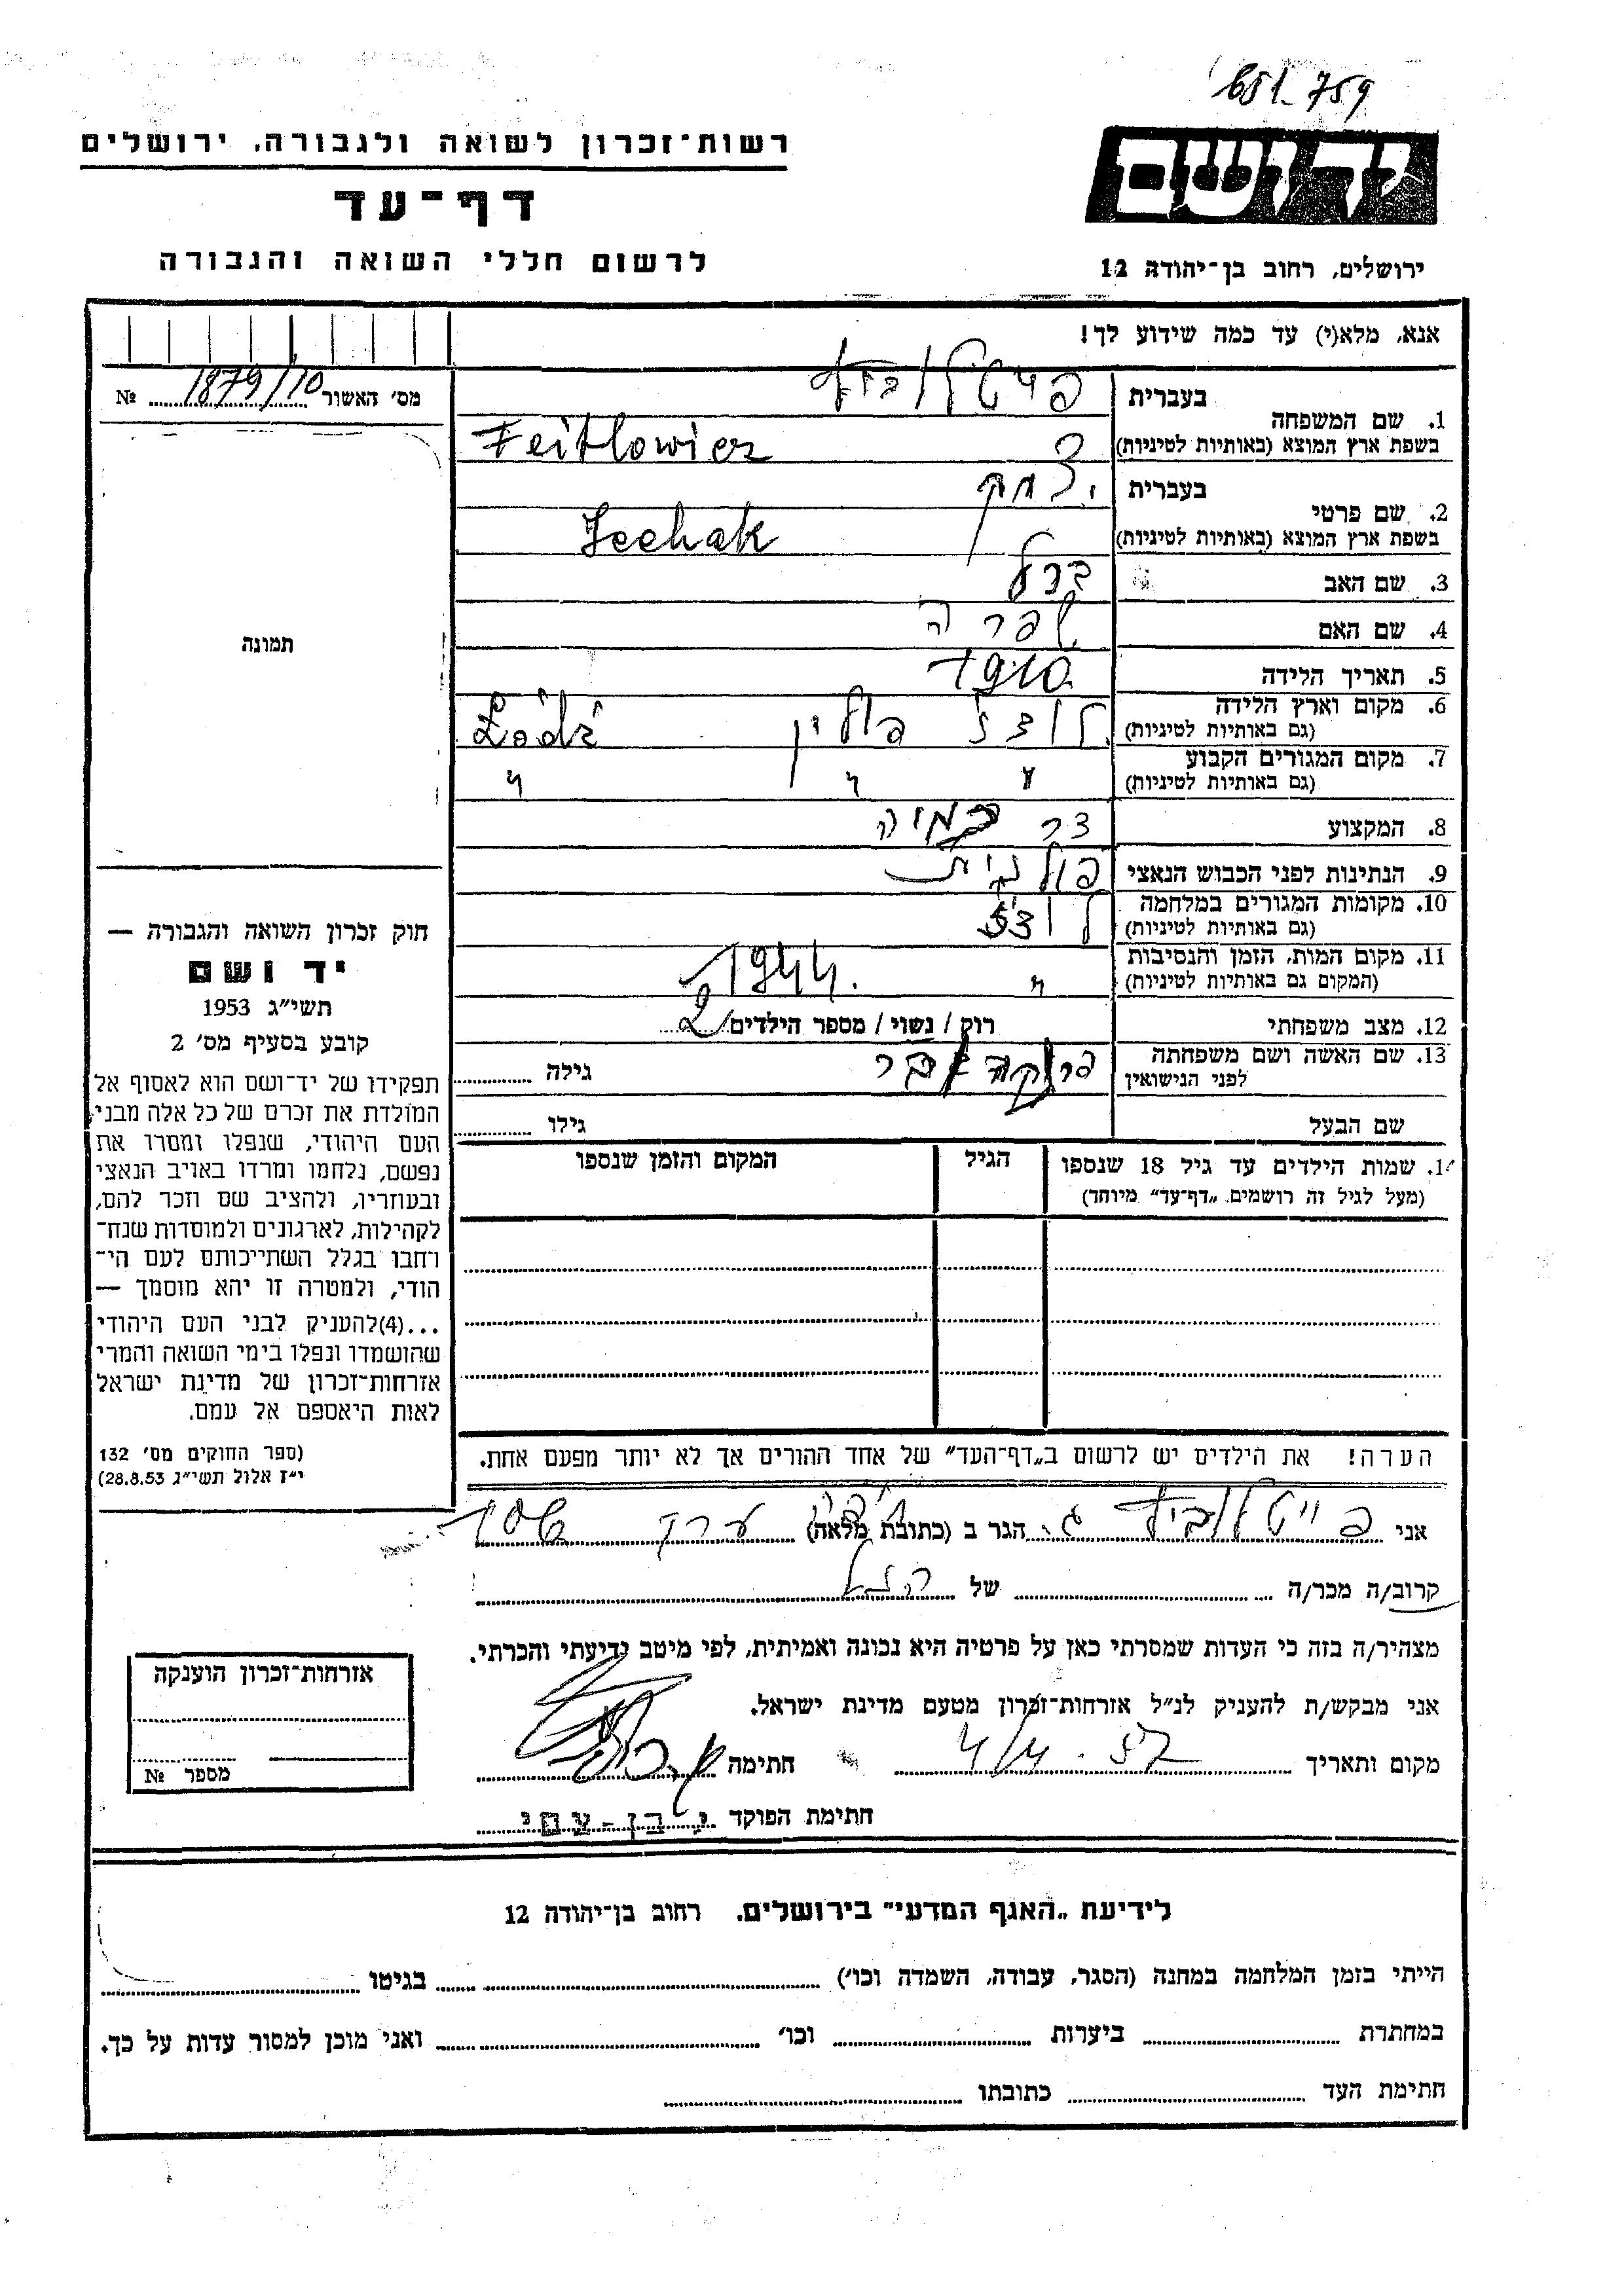 651-759
רשות־זכרון לשואה ולגבורה. ירושלים
דף־עד
לרשום חללי השואה והגבורה
יד ושם
ירושלים, רחוב בן־יהודה 12
אנא, מלא(י) עד כמה שידוע לך!
מס' האשור 1879/10 №
תמונה
חוק זכרון השואה והגבורה —
יד ושם
תשי״ג 1953
קובע בסעיף מס׳ 2
תפקידו של יד־ושם הוא לאסוף אל
המולדת את זכרם של כל אלה מבני
העם היהודי, שנפלו ומסרו את
נפשם, נלחמו ומרדו באויב הנאצי
ובעוזריו, ולהציב שם וזכר להם,
לקהילות, לארגונים ולמוסדות שנח־
רחבו בגלל השתייכותם לעם הי־
הודי, ולמטרה זו יהא מוסמך —
...(4)להעניק לבני העם היהודי
שהושמדו ונפלו בימי השואה והמרי
אזרחות־זכרון של מדינת ישראל
לאות היאספם אל עמם.
(ספר החוקים מס׳ 132
י״ז אלול תשי״ג 28.8.53)
1. שם המשפחה
בעברית פייטלוביץ
בשפת ארץ המוצא (באותיות לטיניות) Feitlowicz
2. שם פרטי
בעברית יצחק
בשפת ארץ המוצא (באותיות לטיניות) Icchak
3. שם האב ברל
4. שם האם שפרה
5. תאריך הלידה 1910
6. מקום וארץ הלידה לודז' פולין Łódź
(גם באותיות לטיניות)
7. מקום המגורים הקבוע " " "
(גם באותיות לטיניות)
8. המקצוע
9. הנתינות לפני הכבוש הנאצי פולנית
10. מקומות המגורים במלחמה לודז'
(גם באותיות לטיניות)
11. מקום המות, הזמן והנסיבות " 1944
(המקום גם באותיות לטיניות)
12. מצב משפחתי רוק / נשוי / מספר הילדים 2
13. שם האשה ושם משפחתה גילה
לפני הנישואין
שם הבעל גילו
14. שמות הילדים עד גיל 18 שנספו הגיל המקום והזמן שנספו
(מעל לגיל זה רושמים „דף־עד״ מיוחד)
הערה! את הילדים יש לרשום ב„דף־העד״ של אחד ההורים אך לא יותר מפעם אחת.
אני פייטלוביץ ג. הגר ב (כתובת מלאה)
קרוב/ה מכר/ה של הנ״ל
מצהיר/ה בזה כי העדות שמסרתי כאן על פרטיה היא נכונה ואמיתית, לפי מיטב ידיעתי והכרתי.
אני מבקש/ת להעניק לנ״ל אזרחות־זכרון מטעם מדינת ישראל.
מקום ותאריך 4/4.57 חתימה
חתימת הפוקד י. בן-עמי
אזרחות־זכרון הוענקה
מספר №
לידיעת „האגף המדעי״ בירושלים. רחוב בן־יהודה 12
הייתי בזמן המלחמה במחנה (הסגר, עבודה, השמדה וכו׳) בגיטו
במחתרת ביערות וכו׳ ואני מוכן למסור עדות על כך.
חתימת העד כתובתו